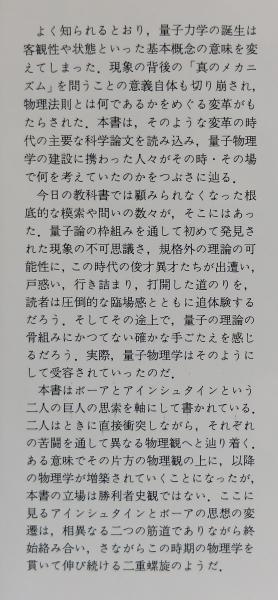 よく知られるとおり，量子力学の誕生は
客観性や状態といった基本概念の意味を変
えてしまった．現象の背後の「真のメカニ
ズム」を問うことの意義自体も切り崩され，
物理法則とは何であるかをめぐる変革がも
たらされた．本書は，そのような変革の時
代の主要な科学論文を読み込み，量子物理
学の建設に携わった人々がその時・その場
で何を考えていたのかをつぶさに辿る．
今日の教科書では顧みられなくなった根
底的な模索や問いの数々が，そこにはあっ
た．量子論の枠組みを通して初めて発見さ
れた現象の不可思議さ，規格外の理論の可
能性に，この時代の俊才異才たちが出遭い，
戸惑い，行き詰まり，打開した道のりを，
読者は圧倒的な臨場感とともに追体験する
だろう．そしてその途上で，量子の理論の
骨組みにかつてない確かな手ごたえを感じ
るだろう．実際，量子物理学はそのように
して受容されていったのだ．
本書はボーアとアインシュタインという
二人の巨人の思索を軸にして書かれている．
二人はときに直接衝突しながら，それぞれ
の苦闘を通して異なる物理観へと辿り着く．
ある意味でその片方の物理観の上に，以降
の物理学が増築されていくことになったが，
本書の立場は勝利者史観ではない．ここに
見るアインシュタインとボーアの思想の変
遷は，相異なる二つの筋道でありながら終
始絡み合い，さながらこの時期の物理学を
貫いて伸び続ける二重螺旋のようだ．